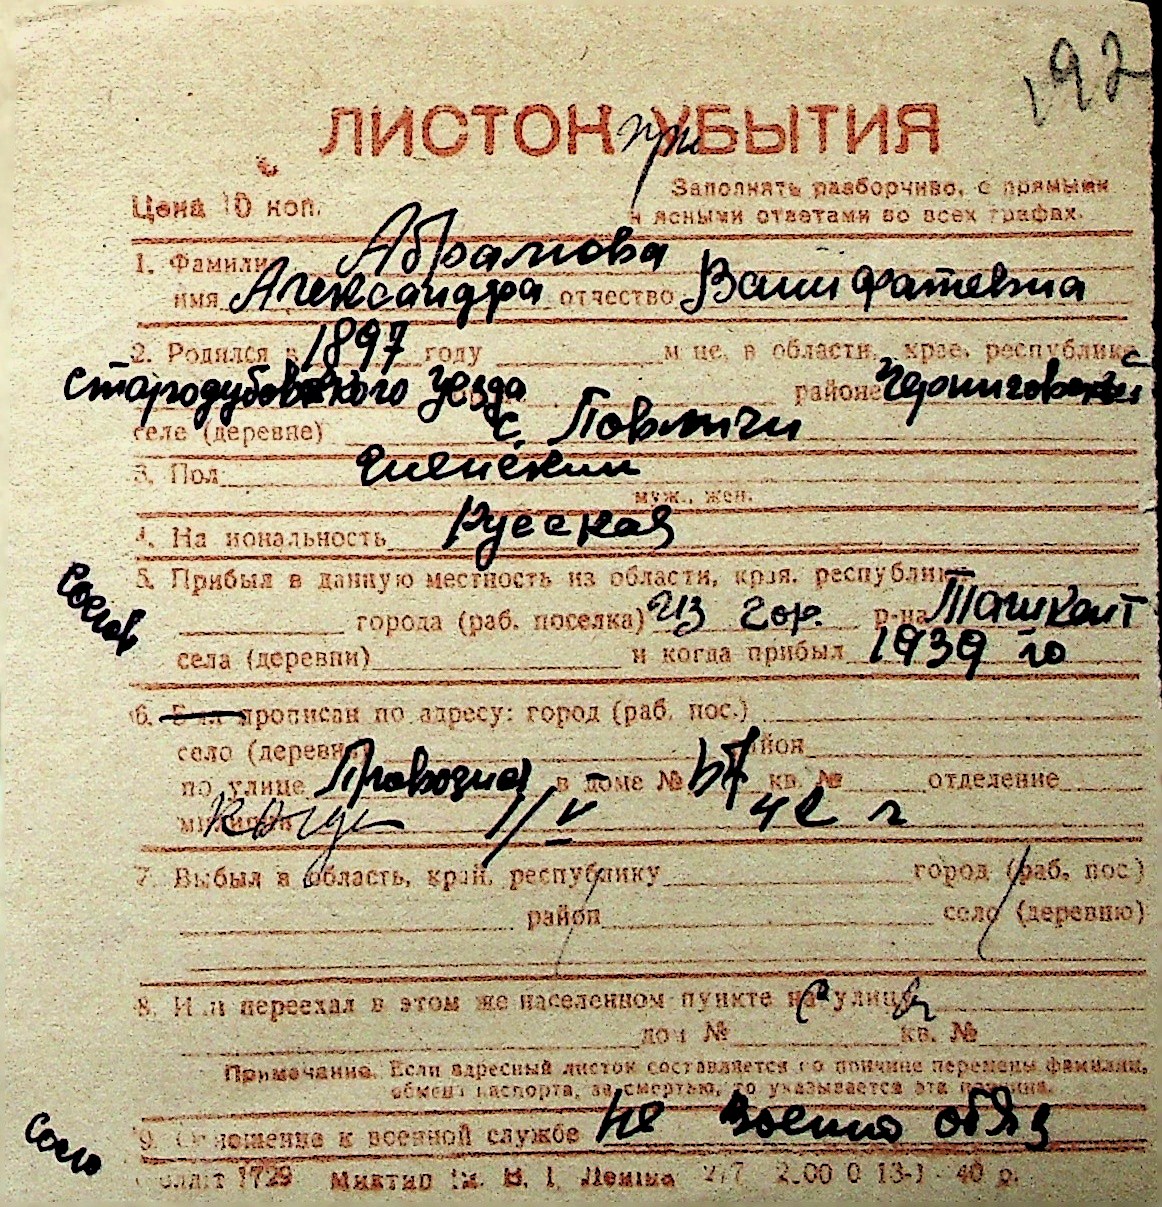 192
ЛИСТОК УБЫТИЯ
при
Цена 10 коп.
Заполнять разборчиво, с прямыми
и ясными ответами во всех графах.
1. Фамилия Абрамова
имя Александра отчество
2. Родился в 1897 году м-це, в области, крае, республике
стародубовского уезда районе
селе (деревне) с.
3. Пол женский
муж., жен.
4. Национальность Русская
5. Прибыл в данную местность из области, края, республики
города (раб. поселка) из гор. р-на Ташкент
села (деревни) и когда прибыл 1939 го
6. Был прописан по адресу: город (раб. пос.)
село (деревня) район
по улице в доме № кв. № отделение
милиции 42 г
7. Выбыл в область, край, республику город (раб. пос.)
район село (деревню)
8. Или переехал в этом же населенном пункте на улицу
дом № кв. №
Примечание. Если адресный листок составляется по причине перемены фамилии,
обмена паспорта, за смертью, то указывается эта причина.
9. Отношение к военной службе не военно обяз
1729 им. В. И. Ленина